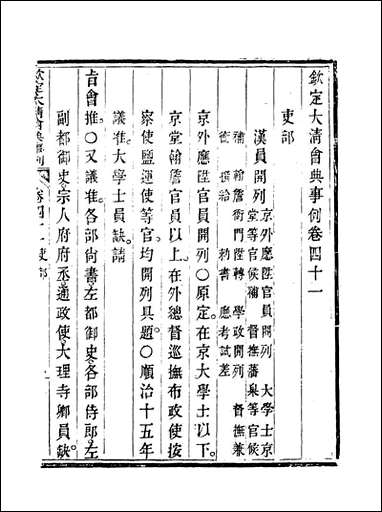 欽定大清會典事例卷四十一
吏部
漢員開列 京外應陞官員開列 大學士京
堂等官候補 督撫藩臬等官候
補 翰詹衙門陞轉 學政開列 督撫兼
銜 撰給 勅書 應考試差
京外應陞官員開列○原定。在京大學士以下。
京堂翰詹官員以上。在外總督巡撫布政使按
察使鹽運使等官。均開列具題。○順治十五年
議准。大學士員缺。請
旨會推。○又議准。各部尚書。左都御史。各部侍郎。左
副都御史。宗人府府丞。通政使。大理寺卿員缺。
欽定大清會典事例 卷四十一 吏部 一